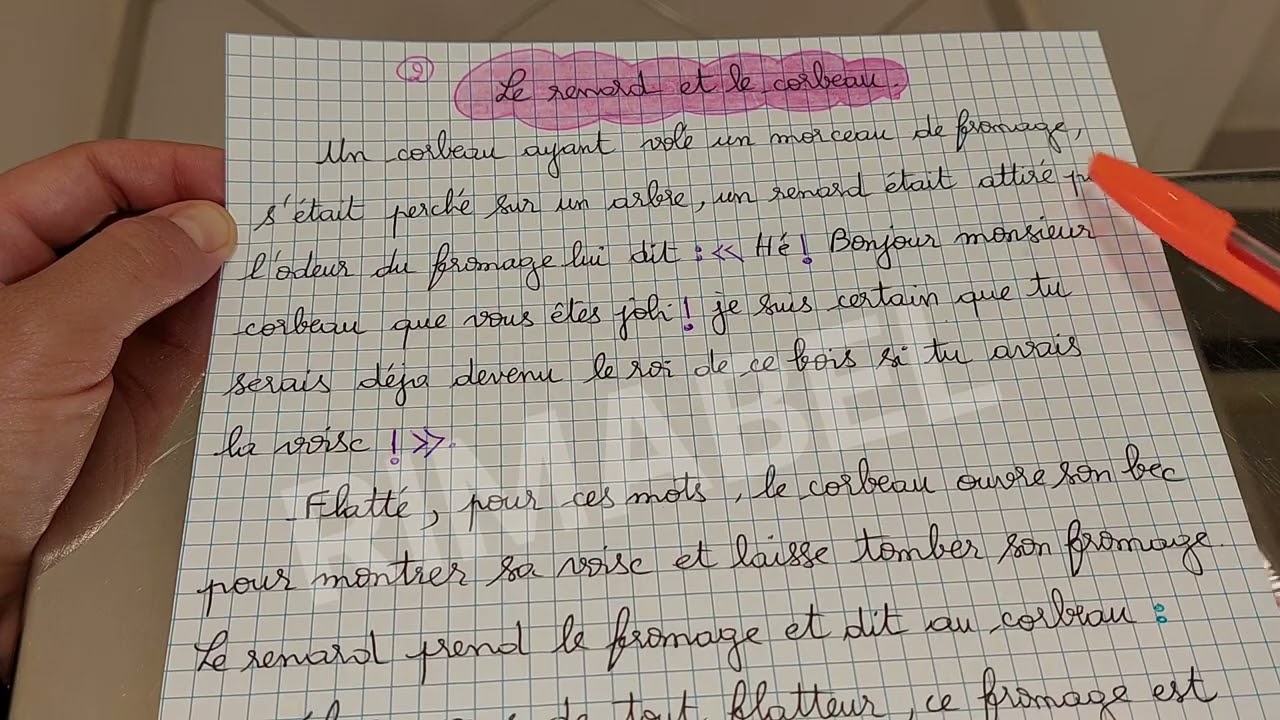 2
Le renard et le corbeau.
Un corbeau ayant volé un morceau de fromage,
s'était perché sur un arbre, un renard était attiré
l'odeur du fromage lui dit : << Hé ! Bonjour monsieur
corbeau que vous êtes joli ! je suis certain que tu
serais déja devenu le roi de ce bois si tu avais
la voix ! >>.
Flatté, pour ces mots, le corbeau ouvre son bec
pour montrer sa voix et laisse tomber son fromage.
Le renard prend le fromage et dit au corbeau :
de tout flatteur, ce fromage est
RIMABEL